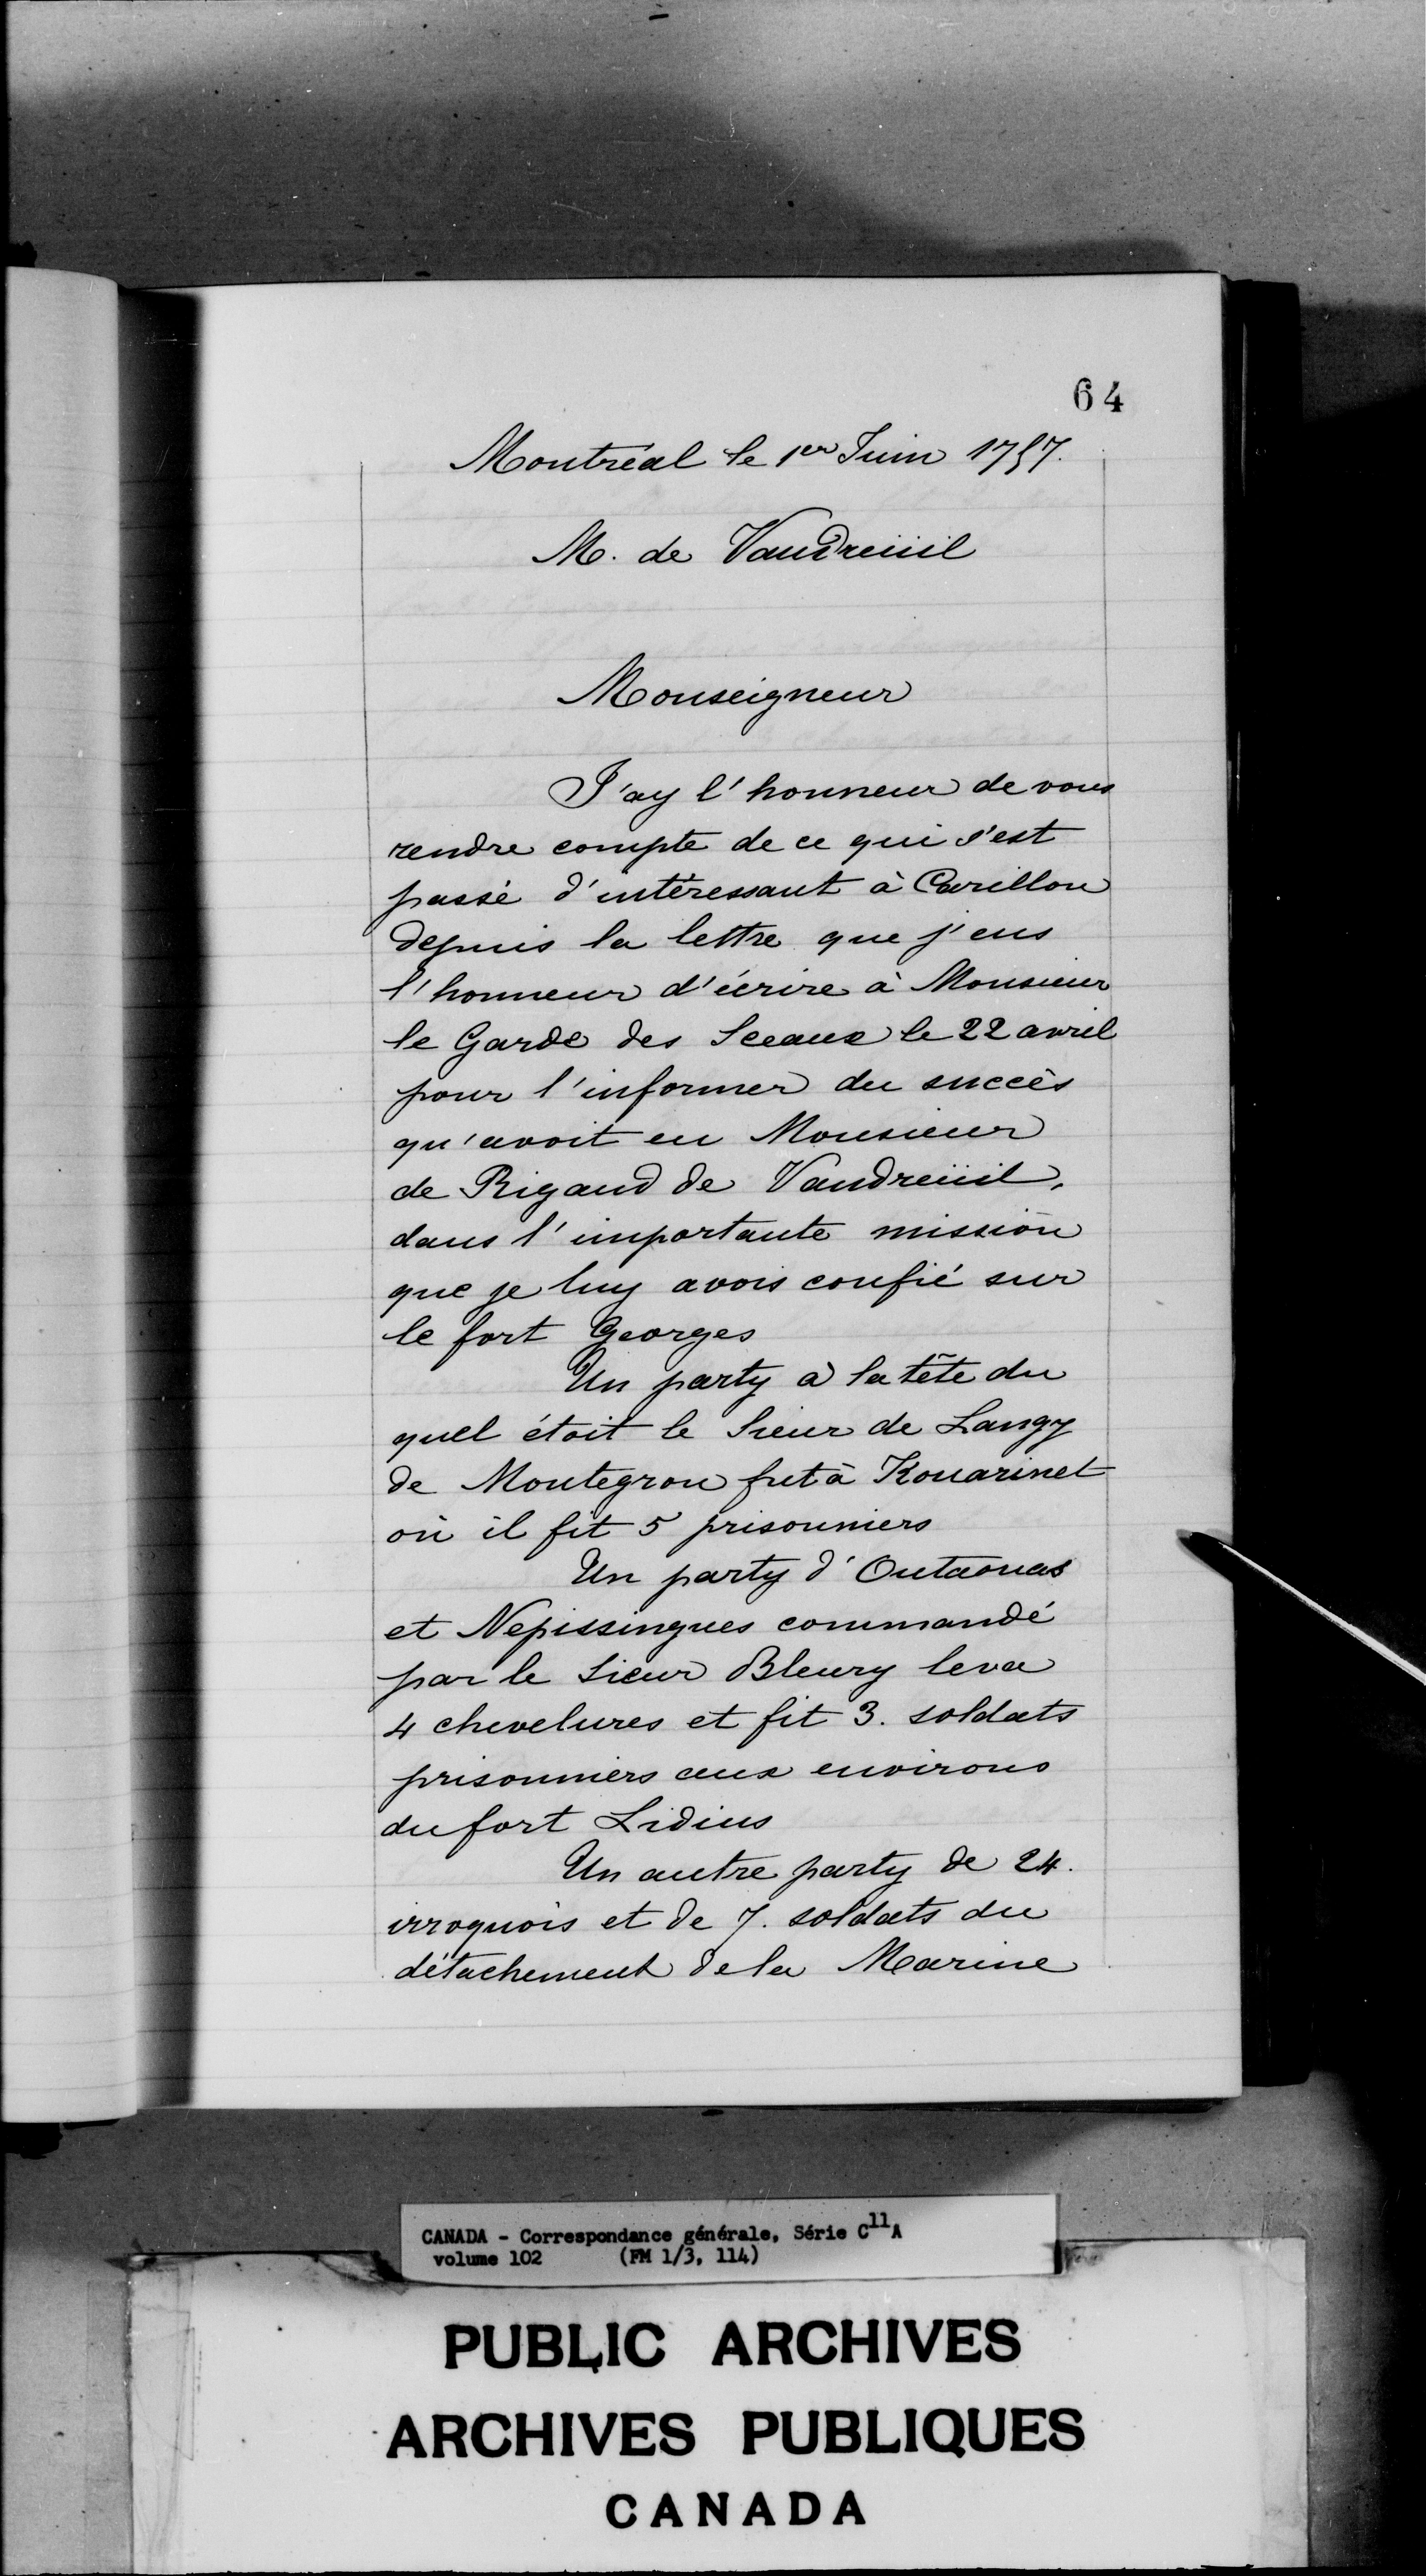 64
Montréal le 1er Juin 1757.
M. de Vaudreüil
Monseigneur
J'ay l'honneur de vous
rendre compte de ce qui s'est
passé d'intéressant à Carillon
depuis la lettre que j'eus
l'honneur d'écrire à Monsieur
le Garde des Sceaux le 22 avril
pour l'informer du succès
qu'avoit eu Monsieur
de Rigaud de Vaudreüil,
dans l'importante mission
que je luy avois confié sur
le fort Georges
Un party à la tête du
quel étoit le Sieur de Langy
de Montegron fut à Kouarinet
où il fit 5 prisonniers
Un party d'Outaouas
et Nepissingues commandé
par le Sieur Bleury leva
4 chevelures et fit 3. soldats
prisonniers aux environs
du fort Lidius
Un autre party de 24.
irroquois et de 7. soldats du
détachement de la Marine
CANADA - Correspondance générale, Série C11A
volume 102 (FM 1/3, 114)
PUBLIC ARCHIVES
ARCHIVES PUBLIQUES
CANADA